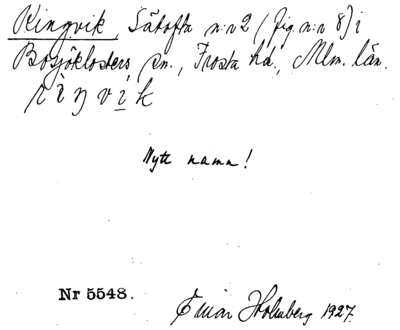 Ringvik, Sätofta n:r 2 (fig. n:r 8) i
Bosjöklosters sn., Frosta hd., Mlm. län.
rìŋvi̲k
Nytt namn!
Nr 5548.
Einar Holmberg 1927.